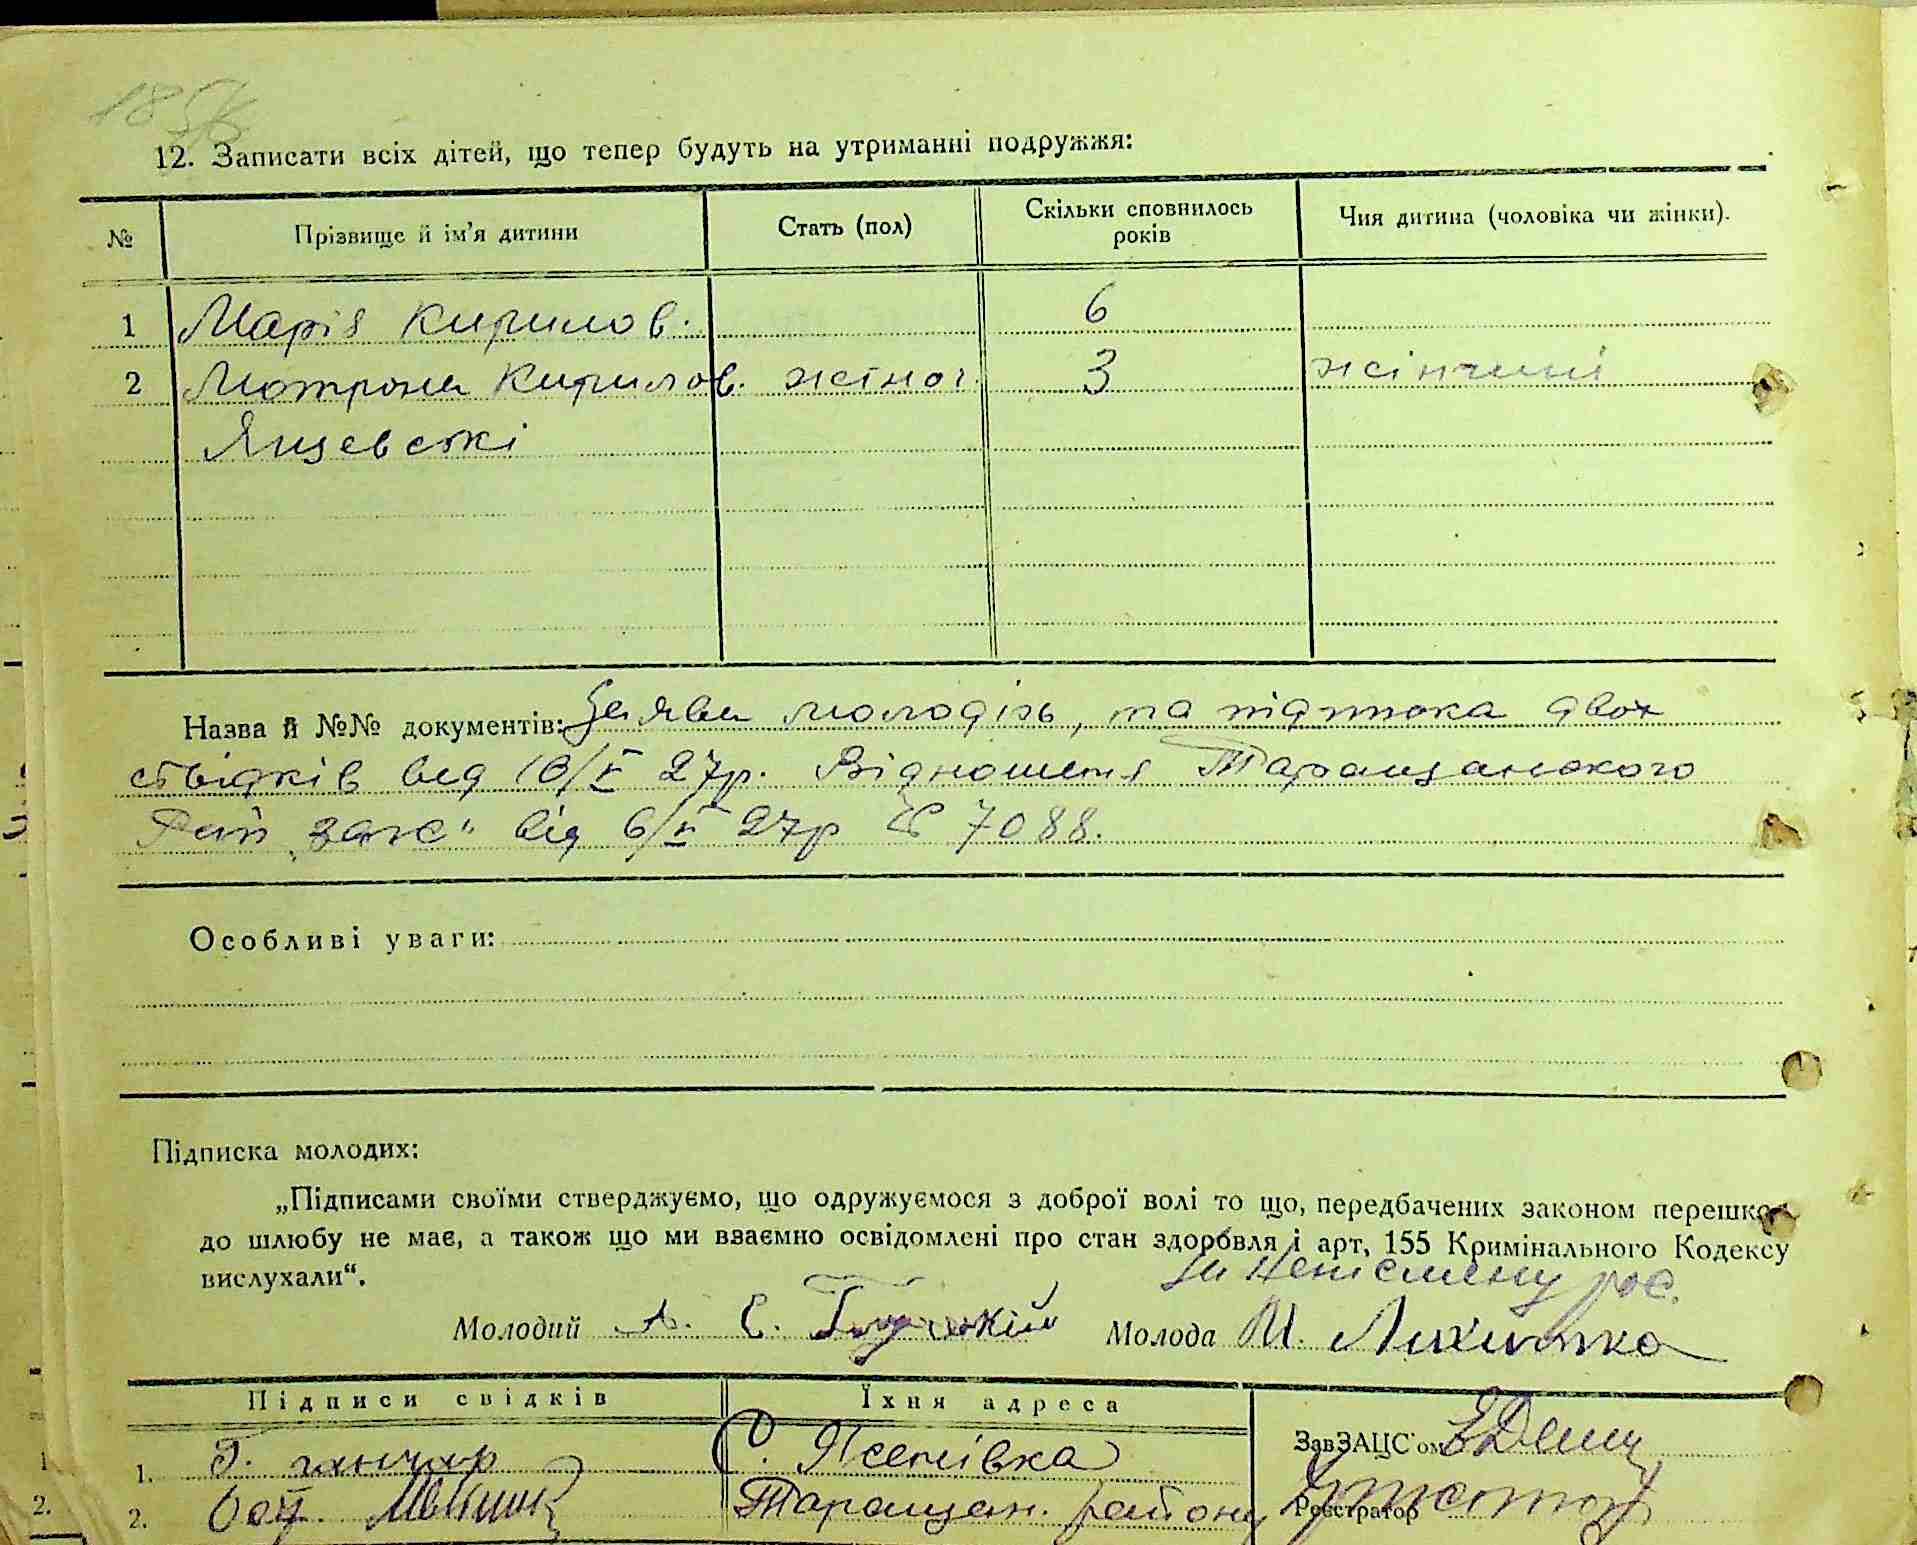 12. Записати всіх дітей, що тепер будуть на утриманні подружжя:
№ Прізвище й ім'я дитини Стать (пол) Скільки сповнилось років Чия дитина (чоловіка чи жінки).
1 Марія Кирилов. 6
2 Мотрона Кирилов. жіноч. 3 жінчині
Ящевські
Назва й №№ документів: Заява молодіх, та підписка двох
свідків від 10/X 27р. Відношення Таращанського
Рай „загс" від 6/X 27р № 7088.
Особливі уваги:
Підписка молодих:
„Підписами своїми стверджуємо, що одружуємося з доброї волі то що, передбачених законом перешкод
до шлюбу не має, а також що ми взаємно освідомлені про стан здоровля і арт, 155 Кримінального Кодексу
вислухали“.
за неписмену рос.
Молодий А. Є. Молода И.
Підписи свідків Їхня адреса
1. Г. гончар С. Ясенівка ЗавЗАЦС'ом
2. Таращан. району Реєстратор
1.
2.